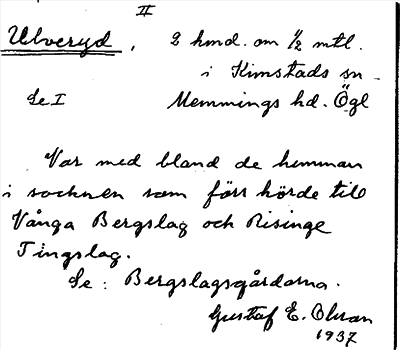 II
Ulveryd, 2 hmd. om ½ mtl.
i Kimstads sn
Se I Memmings hd. Ögl
Var med bland de hemman
i socknen som förr hörde till
Vånga Bergslag och Risinge
Tingslag.
Se: Bergslagsgårdarna.
Gustaf E. Olsson
1937